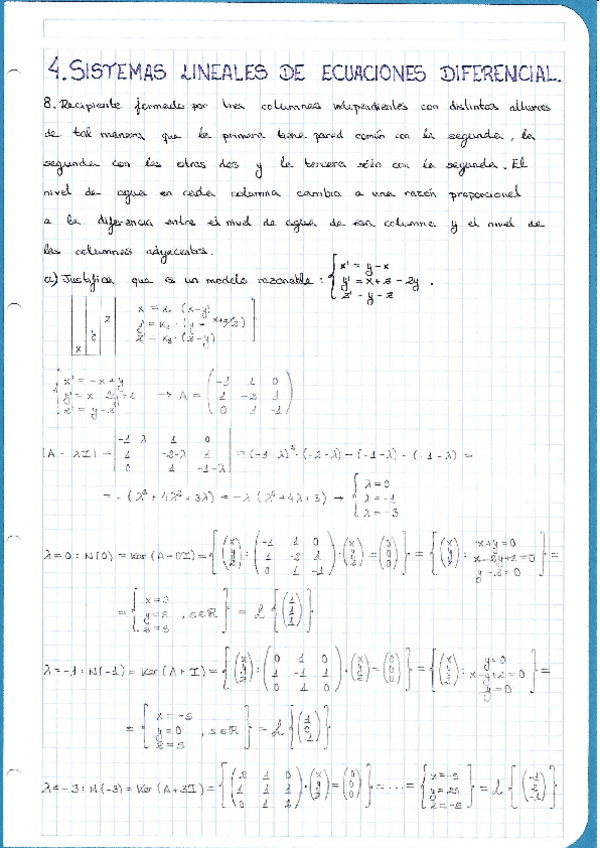 4. SISTEMAS LINEALES DE ECUACIONES DIFERENCIAL.
8. Recipiente formado por tres columnas independientes con distintas alturas
de tal manera que la primera tiene pared común con la segunda, la
segunda con las otras dos y la tercera sólo con la segunda. El
nivel de agua en cada columna cambia a una razón proporcional
a la diferencia entre el nivel de agua de esa columna y el nivel de
las columnas adyacentes.
a) Justifica que es un modelo razonable: { x' = y - x
y' = x + z - 2y .
z' - y - z
x y z
x = x₁ (x-y)
z' = x₃ · (z-y)
x' = -x + y
z' = y - z
→ A = ( -1 1 0
1 -2 1
0 1 -1 )
|A - λI| = | -1-λ 1 0
1 -2-λ 1
0 1 -1-λ | = (-1-λ)² · (-2-λ) - (-1-λ) - (-1-λ) =
= -(λ³ + 4λ² + 3λ) = -λ (λ² + 4λ + 3) → { λ = 0
λ = -1
λ = -3
λ = 0 : N(0) = Ker (A - 0I) = { (x y z) : ( -1 1 0
1 -2 1
0 1 -1 ) · (x y z) = (0 0 0) } = { (x y z) :
y - z = 0 } =
= { , s∈ℝ } = L { (1 1 1) }
λ = -1 : N(-1) = Ker (A + I) = { (x y z) : ( 0 1 0
1 -1 1
0 1 0 ) · (x y z) = (0 0 0) } = { (x y z) : y = 0
x - y + z = 0
y = 0 } =
= { x = -s
y = 0 , s∈ℝ
z = s } = L { }
λ = -3 : N(-3) = Ker (A + 3I) = { ( 2 1 0
1 1 1
0 1 2 ) · (x y z) = (0 0 0) } = ... = { = L { (-1 2 -1) }